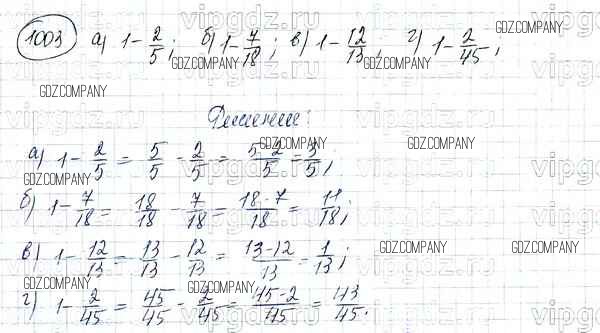 1003 а) 1 - 2/5; б) 1 - 7/18; в) 1 - 12/13, г) 1 - 2/45;
Решение:
а) 1 - 2/5 = 5/5 - 2/5 = (5-2)/5 = 3/5;
б) 1 - 7/18 = 18/18 - 7/18 = (18-7)/18 = 11/18;
в) 1 - 12/13 = 13/13 - 12/13 = (13-12)/13 = 1/13;
г) 1 - 2/45 = 45/45 - 2/45 = (45-2)/45 = 43/45.